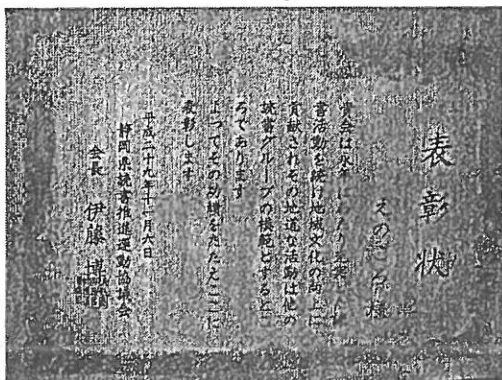 表彰状
えのころ様
貴会は永年にわたり
書活動を続け地域文化の向上に
貢献されその地道な活動は他の
読書グループの模範とするとこ
ろであります
よってその功績をたたえここに
表彰します
平成二十九年十一月六日
静岡県読書推進運動協議会
会長 伊藤 博